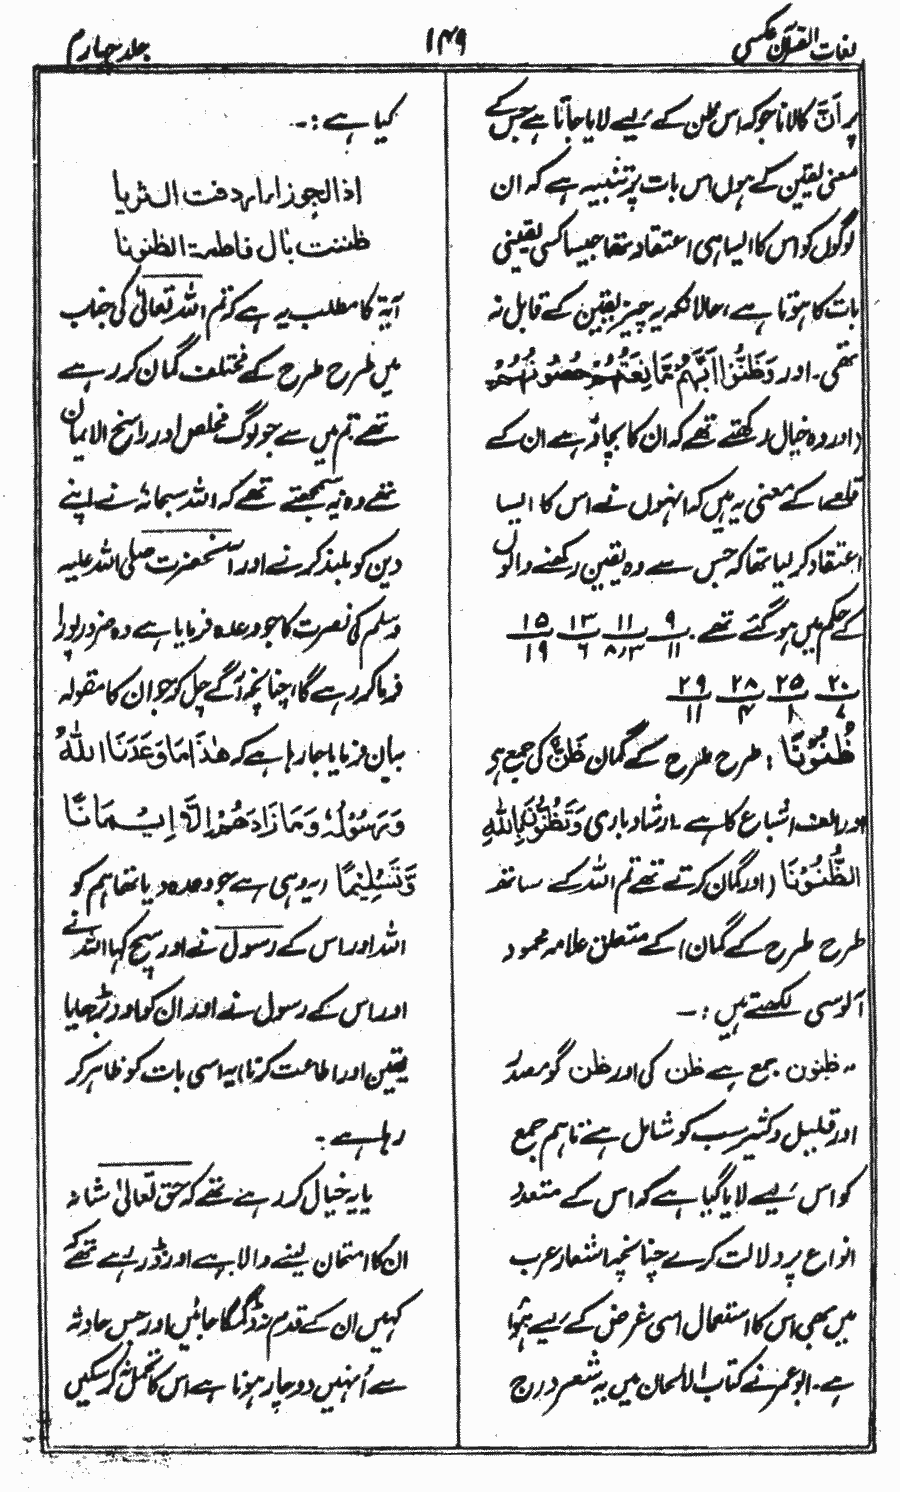 لغات القرآن عکسی
۱۴۹
جلد چہارم
پر اَنَّ کا لانا جو کہ اس ظن کے لیے لایا جاتا ہے جس کے
معنی یقین کے ہوں اس بات پر تنبیہ ہے کہ ان
لوگوں کو اس کا ایسا ہی اعتقاد تھا جیسا کسی یقینی
بات کا ہوتا ہے، حالانکہ یہ چیز یقین کے قابل نہ
تھی۔ اور وَظَنُّوْا اَنَّهُمْ مَّانِعَتُهُمْ حُصُوْنُهُمْ
(اور وہ خیال رکھتے تھے کہ ان کا بچاؤ ہے ان کے
قلعے) کے معنی یہ ہیں کہ انہوں نے اس کا ایسا
اعتقاد کر لیا تھا کہ جس سے وہ یقین رکھنے والوں
کے حکم میں ہو گئے تھے۔ ۹/۱۱ ۱۱/۸،۳ ۱۳/۶ ۱۵/۱۹
۲۰/۸ ۲۵/۱ ۲۸/۴ ۲۹/۱۱
ظُنُوْنًا : طرح طرح کے گمان ظَنٌّ کی جمع ہے
اور الف اشباع کا ہے۔ ارشاد باری وَتَظُنُّوْنَ بِاللّٰهِ
الظُّنُوْنَا (اور گمان کرتے تھے تم اللہ کے ساتھ
طرح طرح کے گمان) کے متعلق علامہ محمود
آلوسی لکھتے ہیں :۔
"ظنون جمع ہے ظن کی اور ظن گو مصدر
اور قلیل و کثیر سب کو شامل ہے تاہم جمع
کو اس لیے لایا گیا ہے کہ اس کے متعدد
انواع پر دلالت کرے چنانچہ اشعار عرب
میں بھی اس کا استعمال اسی غرض کے لیے ہوا
ہے۔ ابو عمر نے کتاب الالحان میں یہ شعر درج
کیا ہے :۔
اذا الجوزاء اردفت الثریا
ظننت بآل فاطمة الظنونا
آیۃ کا مطلب یہ ہے کہ تم اللہ تعالیٰ کی جناب
میں طرح طرح کے مختلف گمان کر رہے
تھے تم میں سے جو لوگ مخلص اور راسخ الایمان
تھے وہ یہ سمجھتے تھے کہ اللہ سبحانہ نے اپنے
دین کو بلند کرنے اور آنحضرت صلی اللہ علیہ
وسلم کی نصرت کا جو وعدہ فرمایا ہے وہ ضرور پورا
فرما کر رہے گا، چنانچہ آگے چل کر جو ان کا مقولہ
بیان فرمایا جا رہا ہے کہ هٰذَا مَا وَعَدَنَا اللّٰهُ
وَرَسُوْلُهٗ وَمَا زَادَهُمْ اِلَّآ اِيْمَانًا
وَّتَسْلِيْمًا (یہ وہی ہے جو وعدہ دیا تھا ہم کو
اللہ اور اس کے رسول نے اور سچ کہا اللہ نے
اور اس کے رسول نے اور ان کو اور بڑھ گیا
یقین اور اطاعت کرنا) یہ اسی بات کو ظاہر کر
رہا ہے۔
یا یہ خیال کر رہے تھے کہ حق تعالیٰ شانہ
ان کا امتحان لینے والا ہے اور ڈر رہے تھے کہ
کہیں ان کے قدم نہ ڈگمگا جائیں اور جس حادثہ
سے اُنہیں دوچار ہونا ہے اس کا تحمل نہ کر سکیں